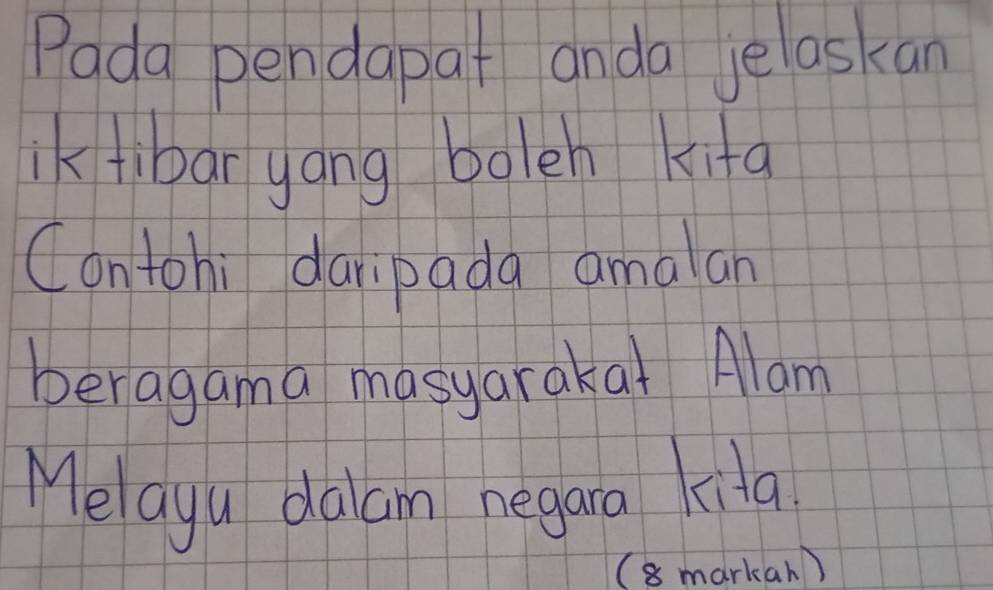 Pada pendapat anda jelaskan
iktibar yang boleh kita
Contohi daripada amalan
beragama masyarakat Alam
Melayu dalam negara kita.
(8 markah)